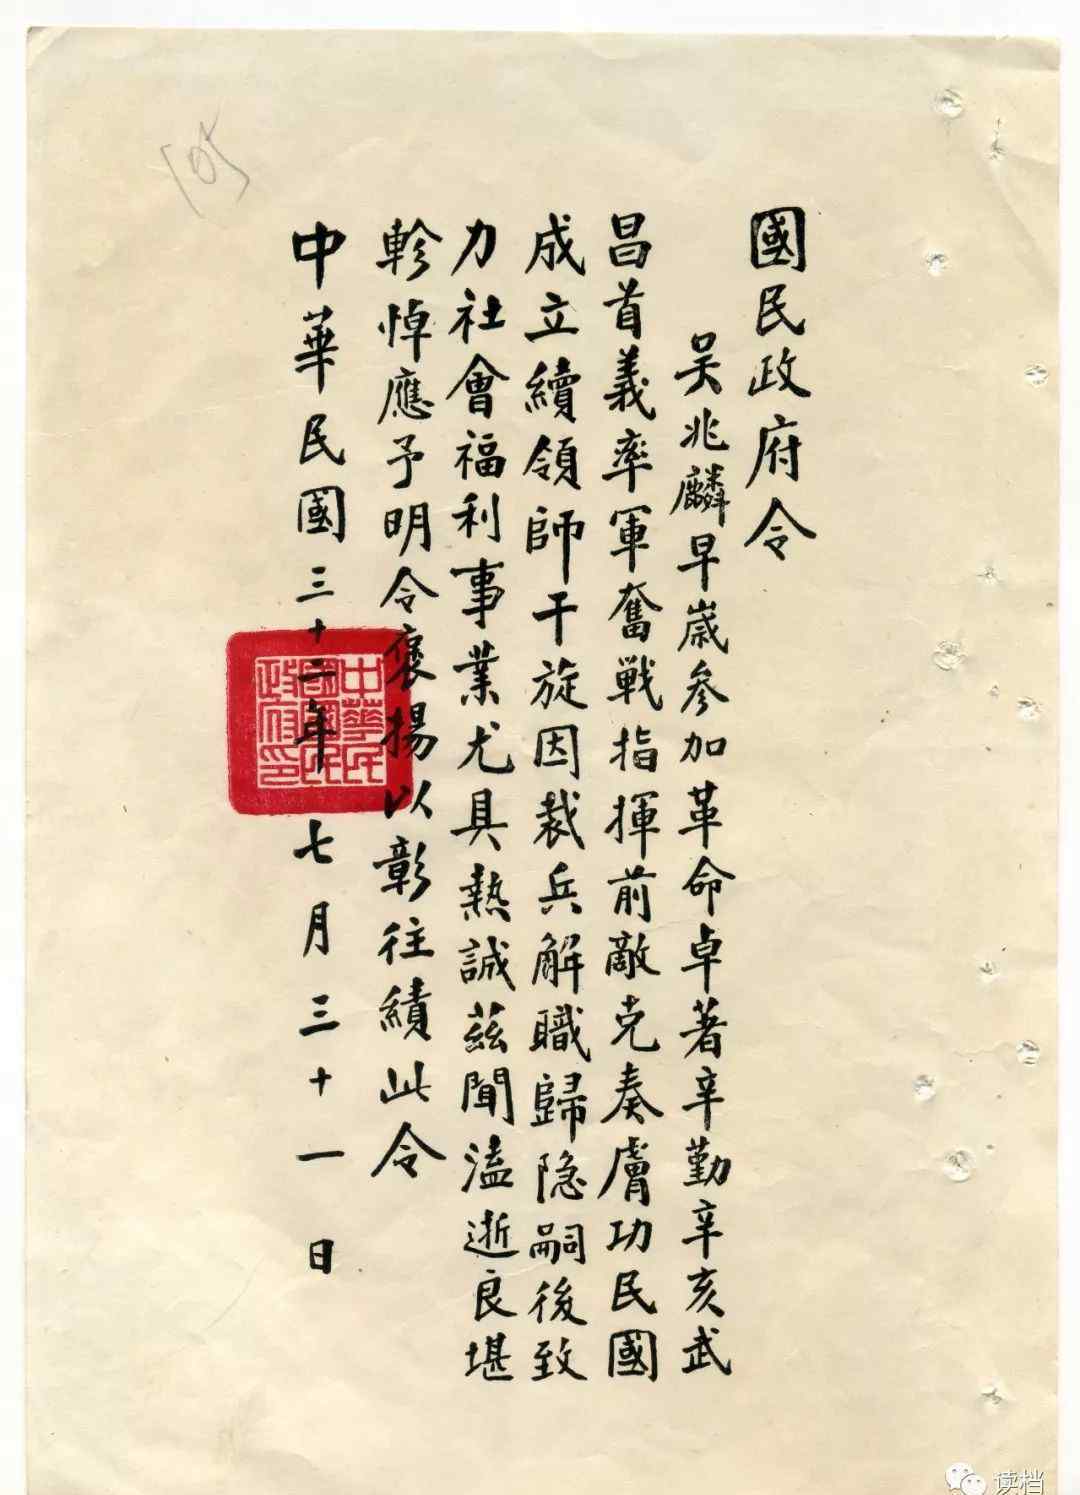 國民政府令
吴兆麟早歲參加革命卓著辛勤辛亥武
昌首義率軍奮戰指揮前敵克奏膚功民國
成立續領師干旋因裁兵解職歸隐嗣後致
力社會福利事業尤具熱誠茲聞溘逝良堪
軫悼應予明令褒揚以彰往績此令
中華民國三十二年七月三十一日
中華民
國國民
政府印
105
读档